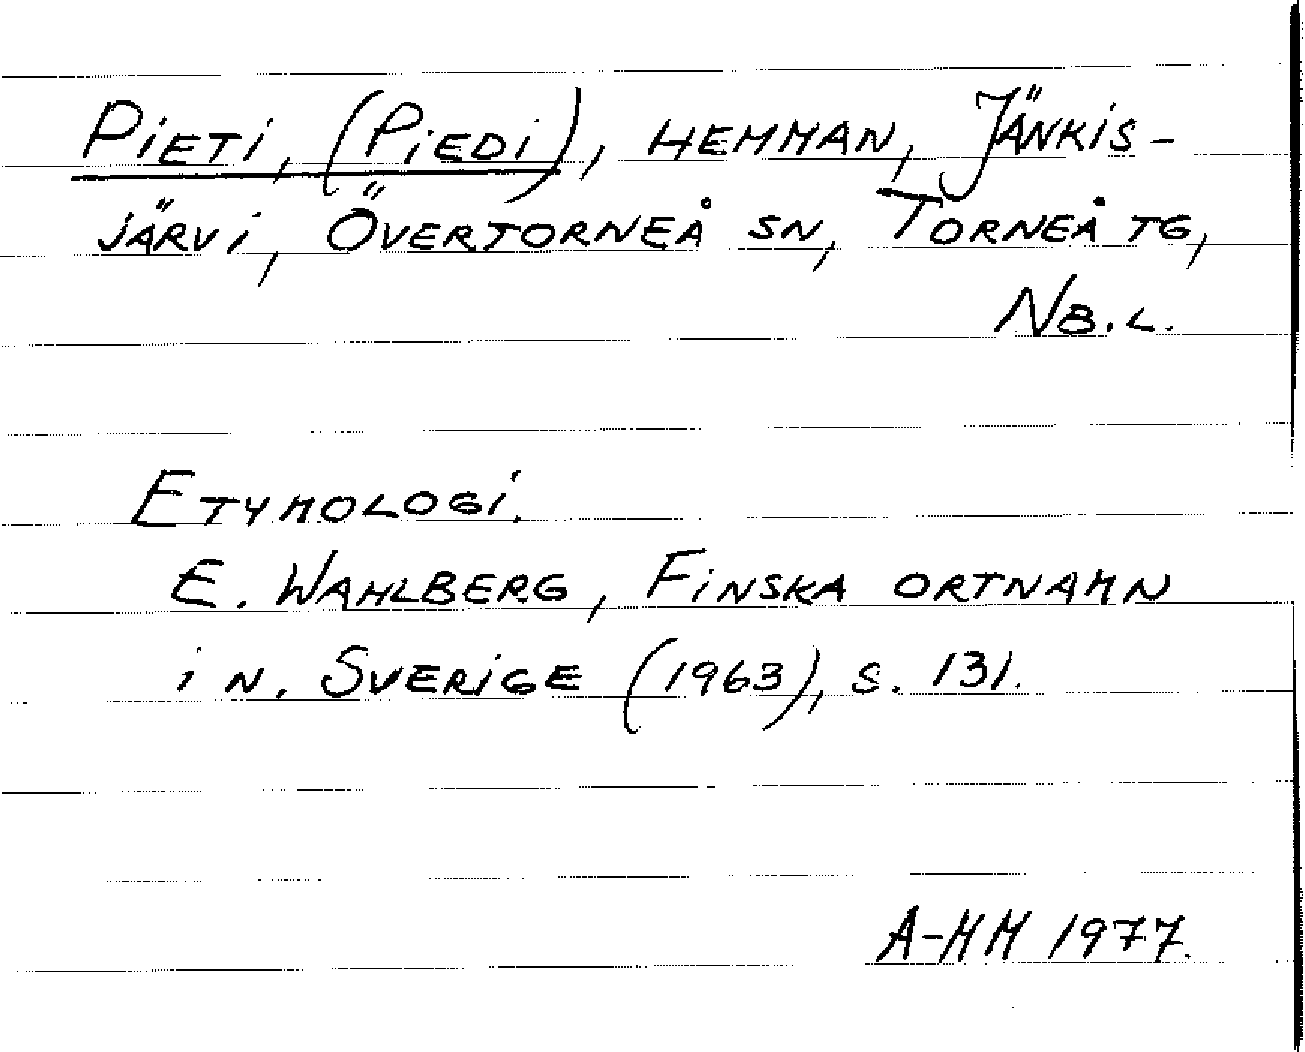 Pieti, (Piedi), hemman, Jänkis-
järvi, Övertorneå sn, Torneå tg,
Nb.l.
Etymologi.
E. Wahlberg, Finska ortnamn
i n. Sverige (1963), s. 131.
A-MM 1977.